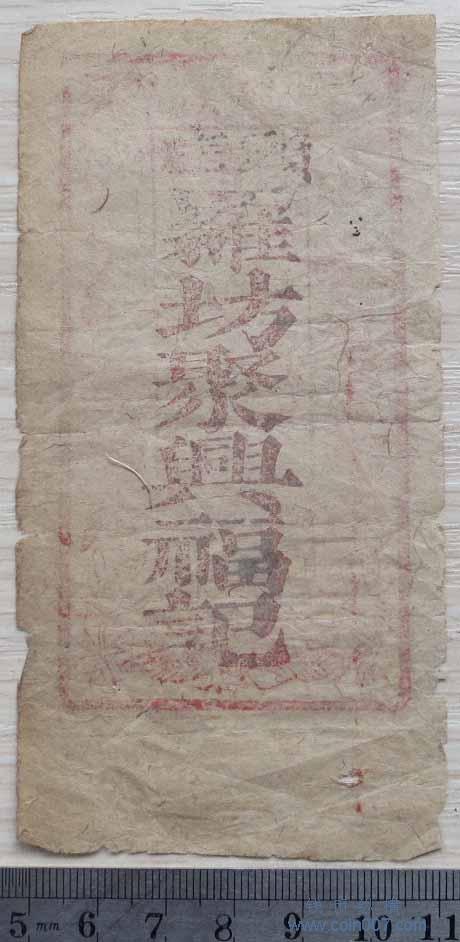 羅坊聚興福記
5 mm 6 7 8 9 10 11
www.coin007.com